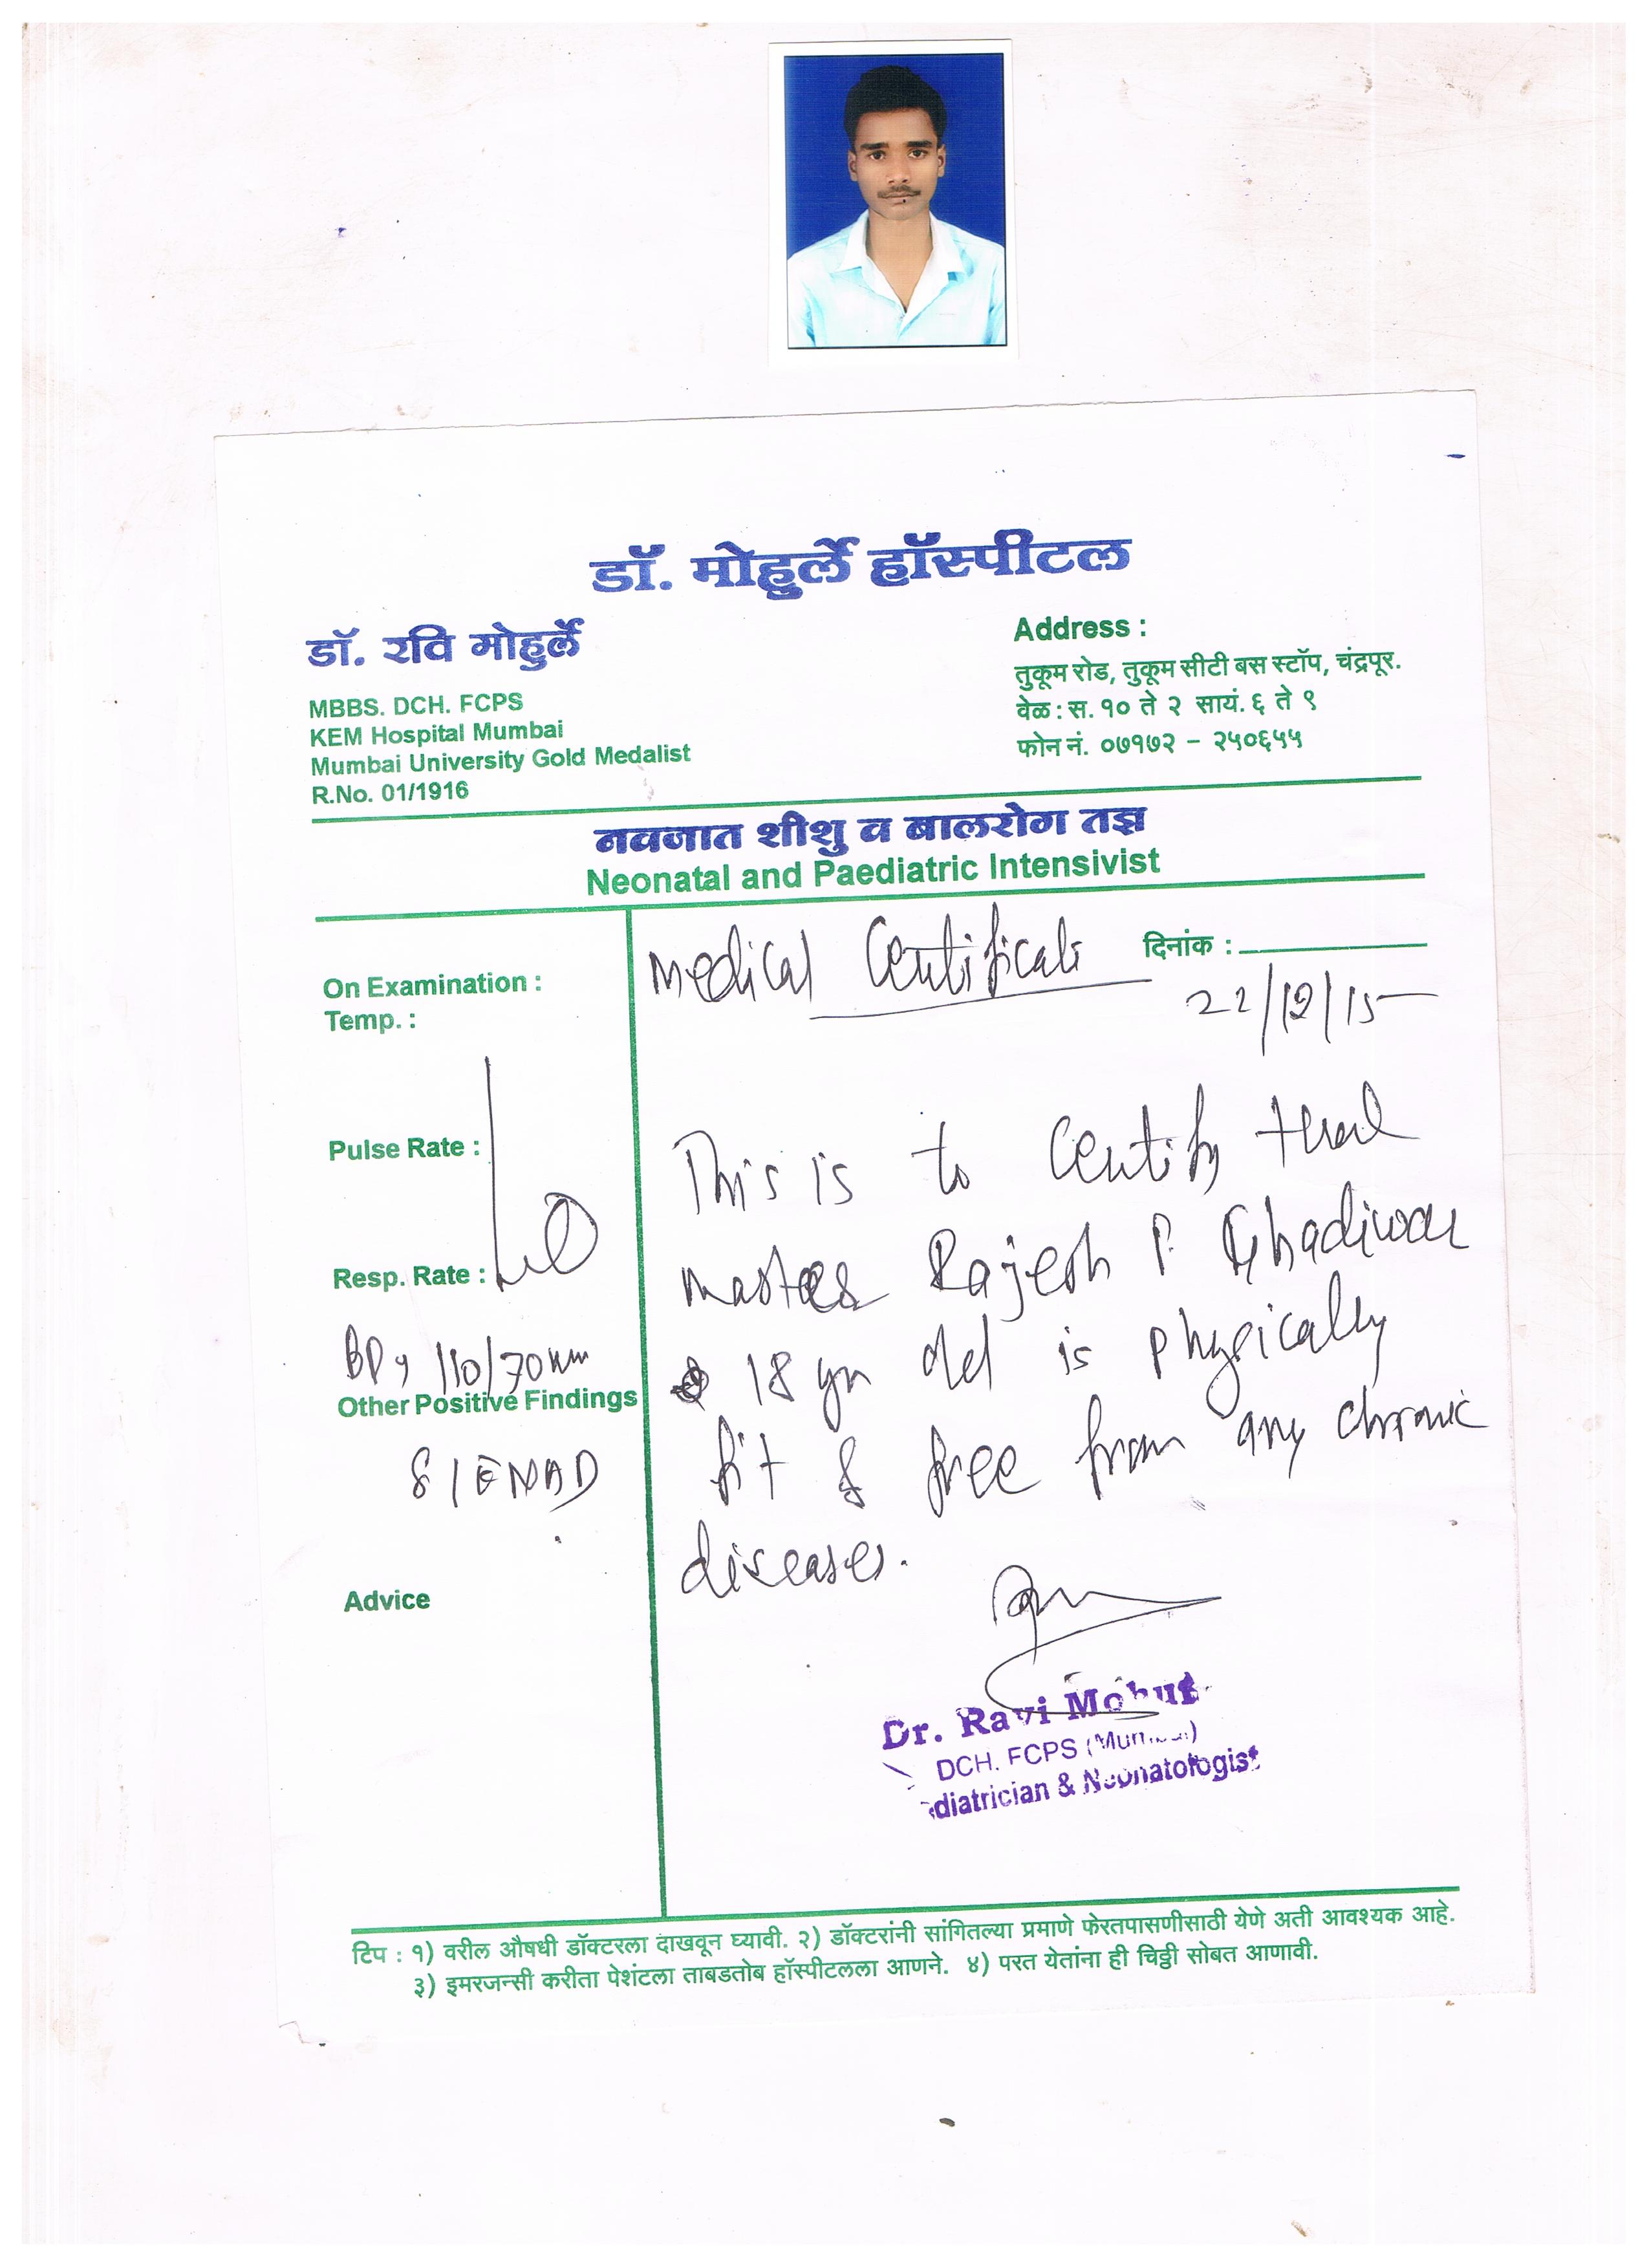 डॉ. मोहुर्ले हॉस्पीटल
डॉ. रवि मोहुर्ले
MBBS. DCH. FCPS
KEM Hospital Mumbai
Mumbai University Gold Medalist
R.No. 01/1916
Address :
तुकूम रोड, तुकूम सीटी बस स्टॉप, चंद्रपूर.
वेळ : स. १० ते २ सायं. ६ ते ९
फोन नं. ०७१७२ – २५०६५५
नवजात शीशु व बालरोग तज्ञ
Neonatal and Paediatric Intensivist
On Examination :
Temp. :
Pulse Rate :
Resp. Rate :
BP 110/70
Other Positive Findings
S/E NAD
Advice
Medical Certificate
दिनांक :
22/12/15
This is to Certify that
Master Rajesh P. Ghadiwar
18 yr old is physically
fit & free from any chronic
diseases.
Dr. Ravi
DCH. FCPS
& Neonatologist
टिप : १) वरील औषधी डॉक्टरला दाखवून घ्यावी. २) डॉक्टरांनी सांगितल्या प्रमाणे फेरतपासणीसाठी येणे अती आवश्यक आहे.
३) इमरजन्सी करीता पेशंटला ताबडतोब हॉस्पीटलला आणने. ४) परत येतांना ही चिठ्ठी सोबत आणावी.